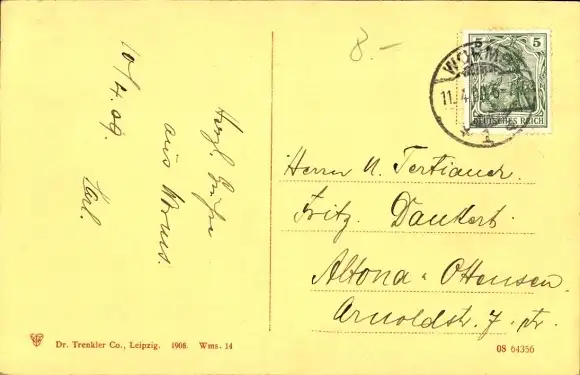 8.-
10/4.09.
Herzl. Grüße
aus Worms.
Karl.
5 5
WORMS
11.4.09.6-
* 1
DEUTSCHES REICH
Herrn U. Tertianer.
Fritz. Dankert.
Altona-Ottensen
Arnoldstr. 7. ptr.
Dr. Trenkler Co., Leipzig. 1908. Wms. 14
08 64356